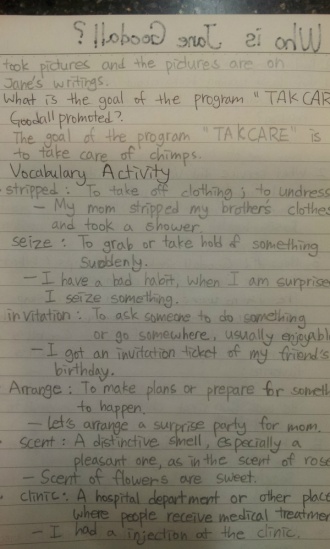 Who is Jane Goodall?!
took pictures and the pictures are on
Jane's writings.
What is the goal of the program "TAKCAR
Goodall promoted?.
The goal of the program "TAKCARE" is
to take care of chimps.
Vocabulary Activity
stripped : To take off clothing ; to undress
- My mom stripped my brother's clothes
and took a shower.
seize : To grab or take hold of something
suddenly.
- I have a bad habit, when I am surprise
I seize something.
invitation : To ask someone to do something
or go somewhere, usually enjoyabl
- I got an invitation ticket of my friend's
birthday.
Arrange : To make plans or prepare for someth
to happen.
- Let's arrange a surprise party for mom.
scent : A distinctive smell, especially a
pleasant one, as in the scent of rose
- Scent of flowers are sweet.
clinic : A hospital department or other place
where people receive medical treatmen
- I had a injection at the clinic.